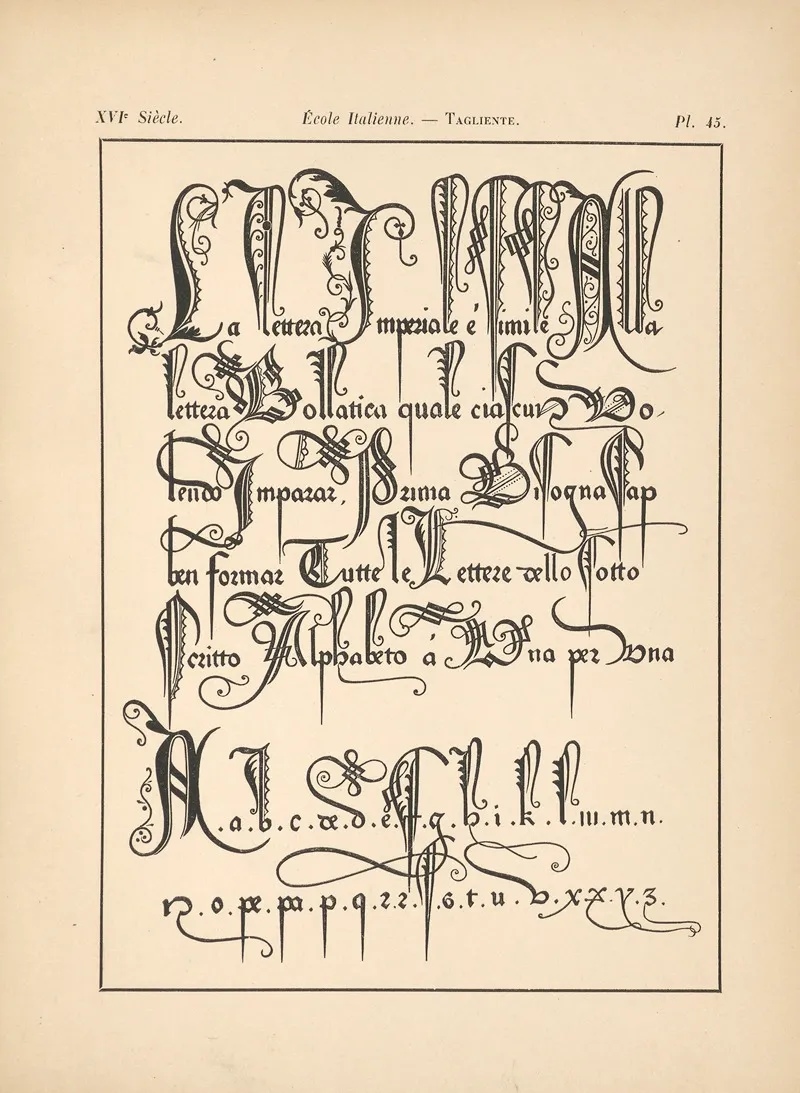 XVIe Siècle. École Italienne. — Tagliente. Pl. 45.
La lettera Imperiale é simile Ala
lettera Bollatica quale ciascun Vo-
lendo Imparar, Prima Bisogna sap
ben formar Tutte le Lettere dello sotto
scritto Alphabeto á Una per Una
A.a.b.c.de.d.e.f.g.h.i.k.l.m.n.
n.o.pe.pa.p.q.r.r.s.s.t.u.v.x.x.y.z.